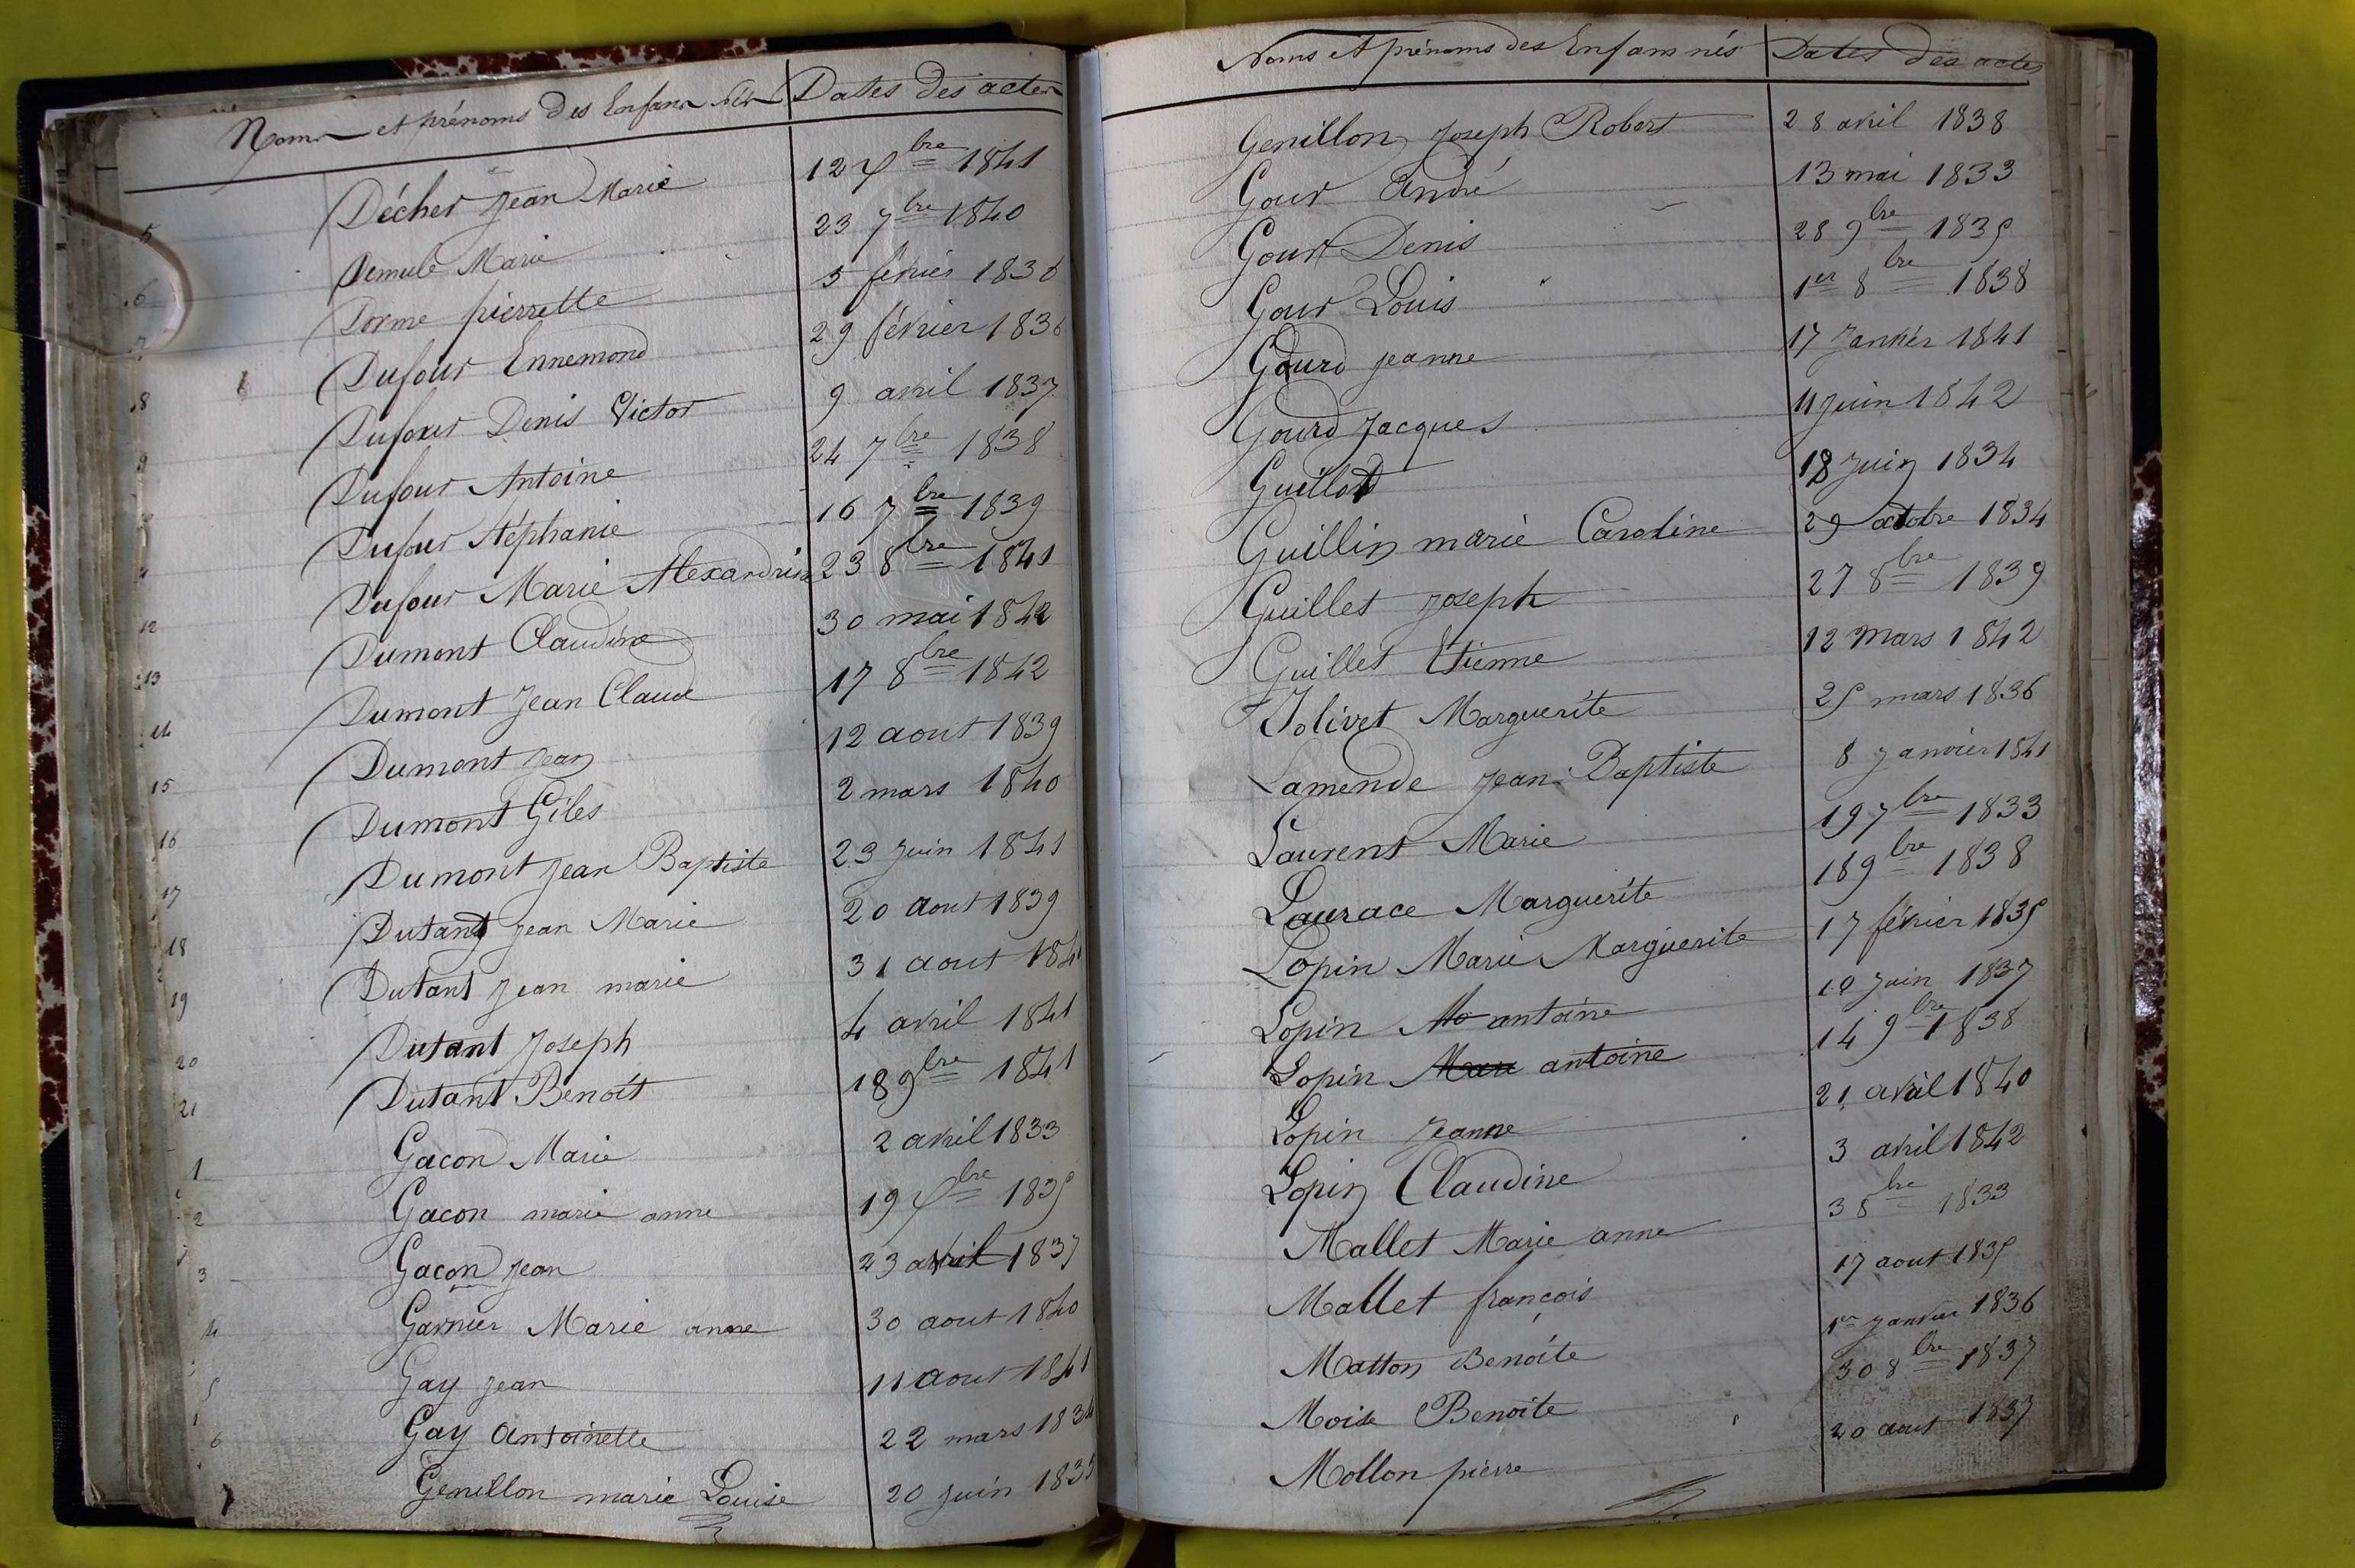 Noms et prénoms des Enfans Nés Dates des actes
Décher Jean Marie 12 Xbre 1841
5 Demule Marie 23 7bre 1840
6 Dorme pierrette 5 février 1836
7 Dufour Ennemond 29 février 1836
8 Dufour Denis Victor 9 avril 1837
9 Dufour Antoine 24 7bre 1838
Dufour Stéphanie 16 7bre 1839
Dufour Marie Alexandrine 23 8bre 1841
12 Dumont Claudine 30 mai 1842
13 Dumont Jean Claude 17 8bre 1842
14 Dumont Jean 12 aout 1839
15 Dumont Giles 2 mars 1840
16 Dumont Jean Baptiste 23 Juin 1841
17 Dutant Jean Marie 20 aout 1839
18 Dutant Jean marie 31 aout 184
19 Dutant Joseph 4 avril 1841
20 Dutant Benoit 18 9bre 1841
21
1 Gacon Marie 2 avril 1833
2 Gacon marie anne 19 Xbre 1835
3 Gacon Jean 23 avril 1837
4 Garnier Marie anne 30 aout 1840
5 Gay Jean 11 aout 1841
6 Gay Antoinette 22 mars 1834
7 Genillon marie Louise 20 juin 1835
Noms et prénoms des Enfam nés Dates des actes
Genillon Joseph Robert 28 avril 1838
Gour André 13 mai 1833
Gour Denis 28 9bre 1835
Gour Louis 1er 8bre 1838
Gourd Jeanne 17 Janvier 1841
Gourd Jacques 11 juin 1842
Guillot 18 Juin 1834
Guillin marie Caroline 29 octobre 1834
Guillet Joseph 27 8bre 1839
Guillet Etienne 12 Mars 1842
Jolivet Marguerite 25 mars 1836
Lamende Jean Baptiste 8 Janvier 1841
Laurent Marie 19 7bre 1833
Laurace Marguerite 18 9bre 1838
Lopin Marie Marguerite 17 février 1835
Lopin Ma antoine 10 Juin 1837
Lopin Marie antoine 14 9bre 1838
Lopin Jeanne 21 avril 1840
Lopin Claudine 3 avril 1842
Mallet Marie anne 3 8bre 1833
Mallet françois 17 aout 1835
Matton Benoite 1er Janvier 1836
Moise Benoite 30 8bre 1837
Mollon pierre 20 aout 1837